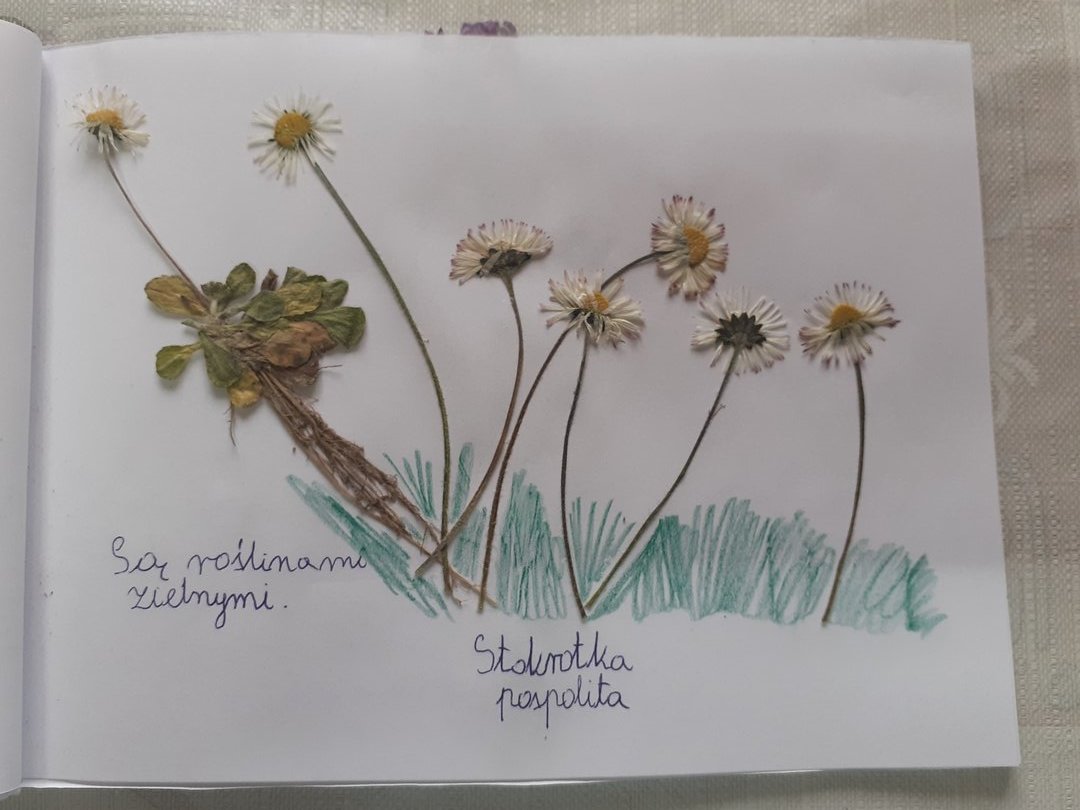 Są roślinami
zielnymi.
Stokrotka
pospolita